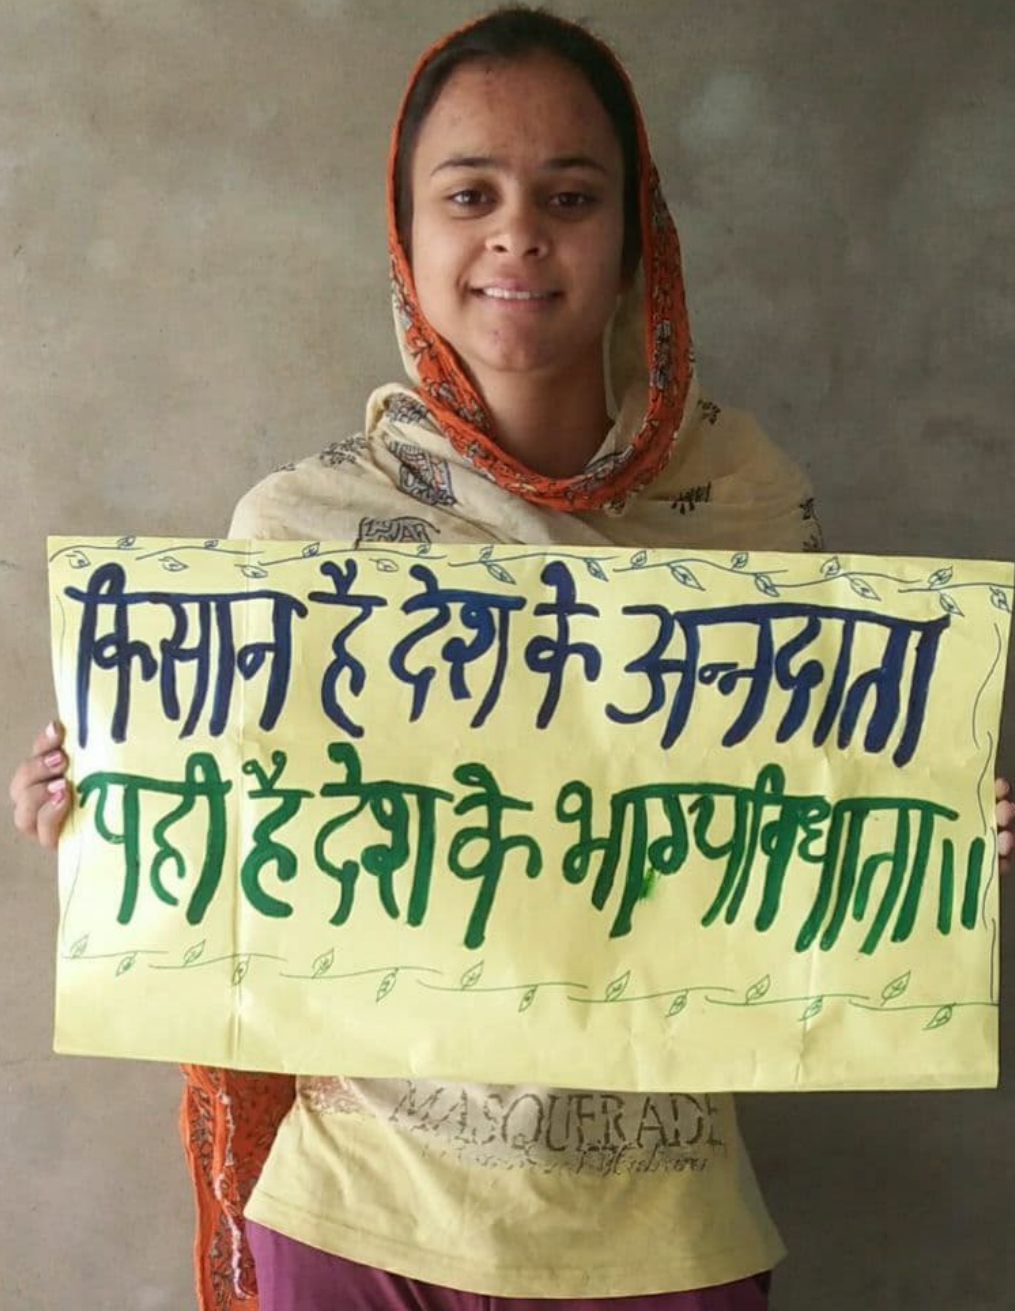 किसान है देश के अन्नदाता
यही है देश के भाग्यविधाता॥
MASQUERADE